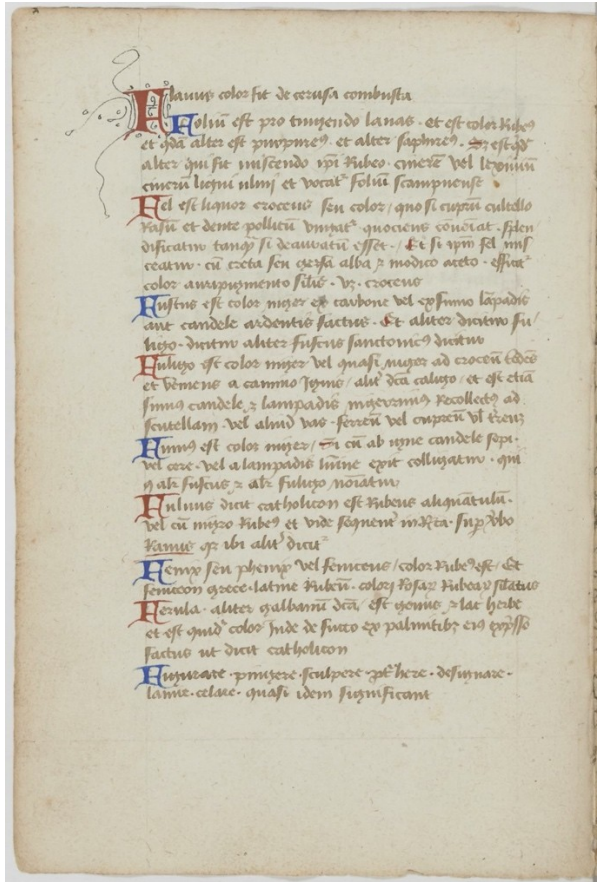 Flavus color fit de cerusa combusta
Foliū est pro tingendo lanas · et est color Rubeꝰ
et qdā alter est purpureꝰ · et alter saphireꝰ · Sꝫ est qd
alter qui fit miscendo ipi Rubeo · cinerem vel lexiviū
cinerū ligni ulmi et vocatʳ foliū
Fel est liquor croceus seu color / quo si cuprū cultello
rasū et dente pollitū ungatʳ quociens coveniat · splen
dificatur tanqꝫ si deauratū esset · / Et si ipm fel mis
ceatur · cū creta seu gersa alba ⁊ modico aceto · efficitʳ
color auripigmento silis · vꝫ · croceus
Fustus est color niger ex carbone vel ex fumo lāpadis
aut candele ardentis factus · Et aliter dicitur fu /
ligo · dicitur aliter fuscus dicitur
Fuligo est color niger vel quasi niger ad croceū tēdēs
et veniens a camino Ignis / alitʳ dca caligo / et est etiā
fumꝰ candele ⁊ lampadis nigerrimus Recollectꝰ ad
scutellam vel aliud vas · ferreū vel cupreū vl terreū
Fumꝰ est color niger / Si cū ab igne candele sepi ·
vel cere · vel a lampadis lumine exit colligatur · qui
ꝯ alr fuscus ⁊ alr fuligo noīatur
Fulvus dicit catholicon est Rubeus aliquātulū ·
vel cū nigro Rubeꝰ et vide sequentʳ in Rta · sup vbo
Ravus qꝛ ibi alitʳ dicitʳ
Fenix seu phenix vel feniceus / color Rubeꝰ est / Et
feniceon grece · latine Rubeū · colori Rosaꝝ Rubeaꝝ silatus
Ferula · aliter galbanū dca / est genus ⁊ lac herbe
et est quidā color Inde de succo ex palmitibꝫ eiꝰ exp̄sso
factus ut dicit catholicon
Figurare · pingere · sculpere · designare ·
linire · celare · quasi idem significant